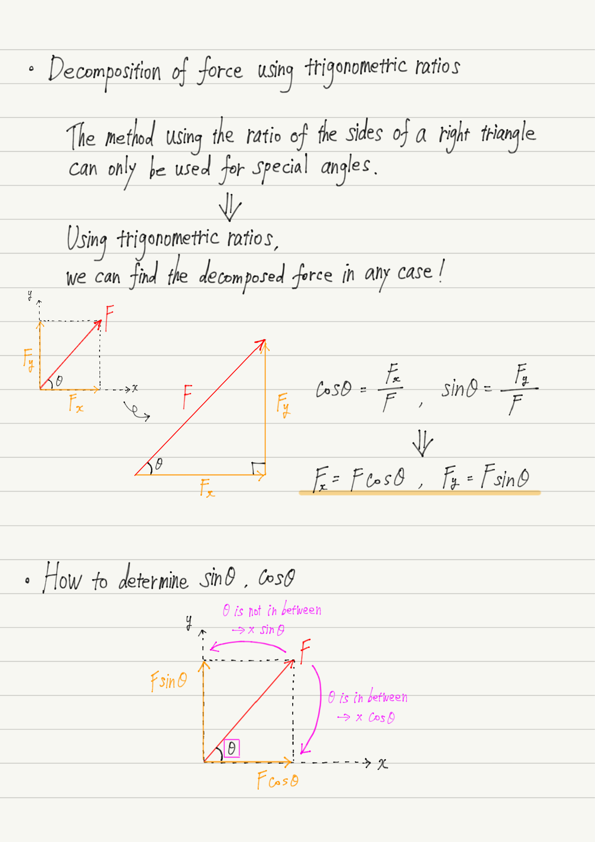 • Decomposition of force using trigonometric ratios
The method using the ratio of the sides of a right triangle
can only be used for special angles.
⇓
Using trigonometric ratios,
we can find the decomposed force in any case!
y
F
Fy
θ
x
Fx
F
Fy
θ
Fx
cosθ = Fx/F , sinθ = Fy/F
⇓
Fx = Fcosθ , Fy = Fsinθ
• How to determine sinθ, cosθ
θ is not in between
→ x sinθ
y
F
Fsinθ
θ is in between
→ x cosθ
θ
x
Fcosθ